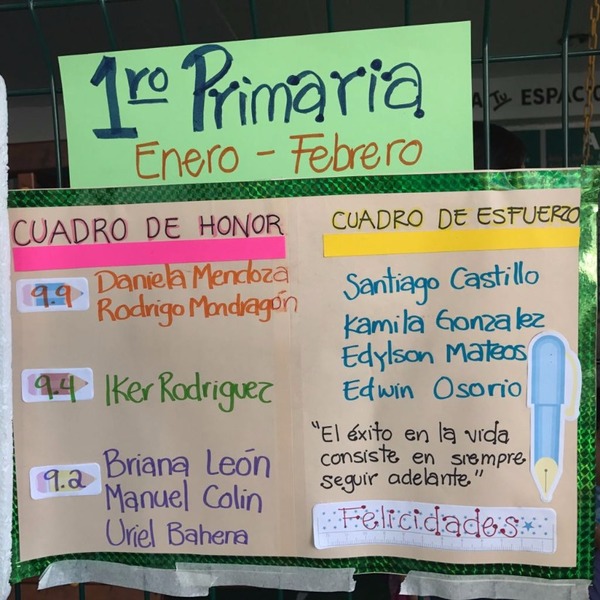 1ro Primaria
Enero - Febrero
A Tu ESPACIO
CUADRO DE HONOR
9.9 Daniela Mendoza
Rodrigo Mondragón
9.4 Iker Rodriguez
9.2 Briana León
Manuel Colin
Uriel Bahena
CUADRO DE ESFUERZO
Santiago Castillo
Kamila Gonzalez
Edylson Mateos
Edwin Osorio
"El éxito en la vida
consiste en siempre
seguir adelante."
Felicidades